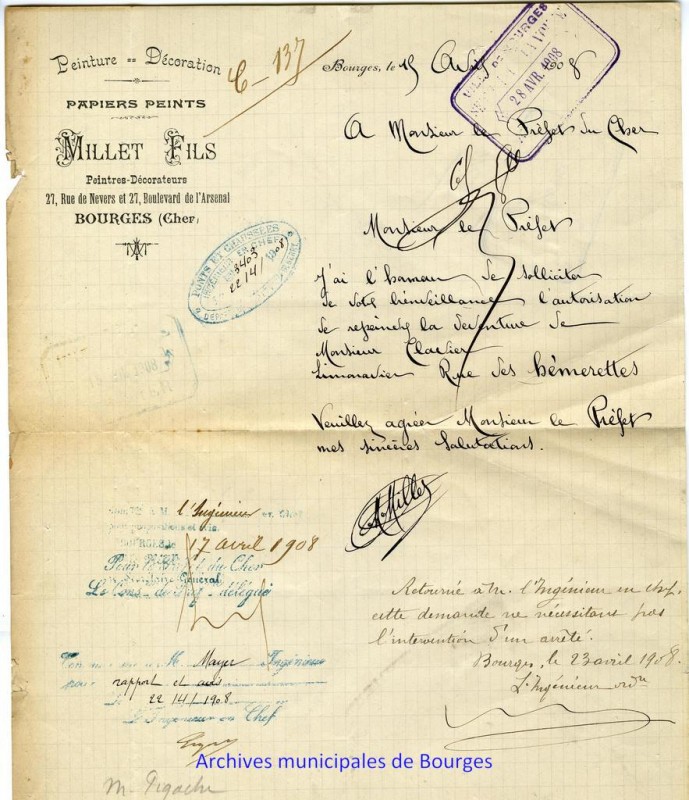 Peinture == Décoration
PAPIERS PEINTS
MILLET FILS
Peintres-Décorateurs
27, Rue de Nevers et 27, Boulevard de l'Arsenal
BOURGES (Cher)
C - 137
Bourges, le 15 Avril 1908
VILLE DE BOURGES
28 AVR. 1908
A Monsieur le Préfet du Cher
Monsieur le Préfet
PONTS ET CHAUSSÉES
INGÉNIEUR EN CHEF
3403
22/4/1908
J'ai l'honneur de solliciter
de votre bienveillance l'autorisation
de repeindre la devanture de
Monsieur Clavier
Limonadier Rue des hémerettes
Veuillez agréer Monsieur le Préfet
mes sincères salutations.
A Millet
M. l'Ingénieur en Chef
BOURGES, le
17 avril 1908
Pour le Préfet du Cher
Secrétaire Général
délégué
à M. Mayer Ingénieur
pour rapport et avis
le 22/4/1908
L'Ingénieur en Chef
Retournée à M. l'Ingénieur en chef,
cette demande ne nécessitant pas
l'intervention d'un arrêté.
Bourges, le 23 avril 1908.
L'Ingénieur ordre
M. Pigache
Archives municipales de Bourges